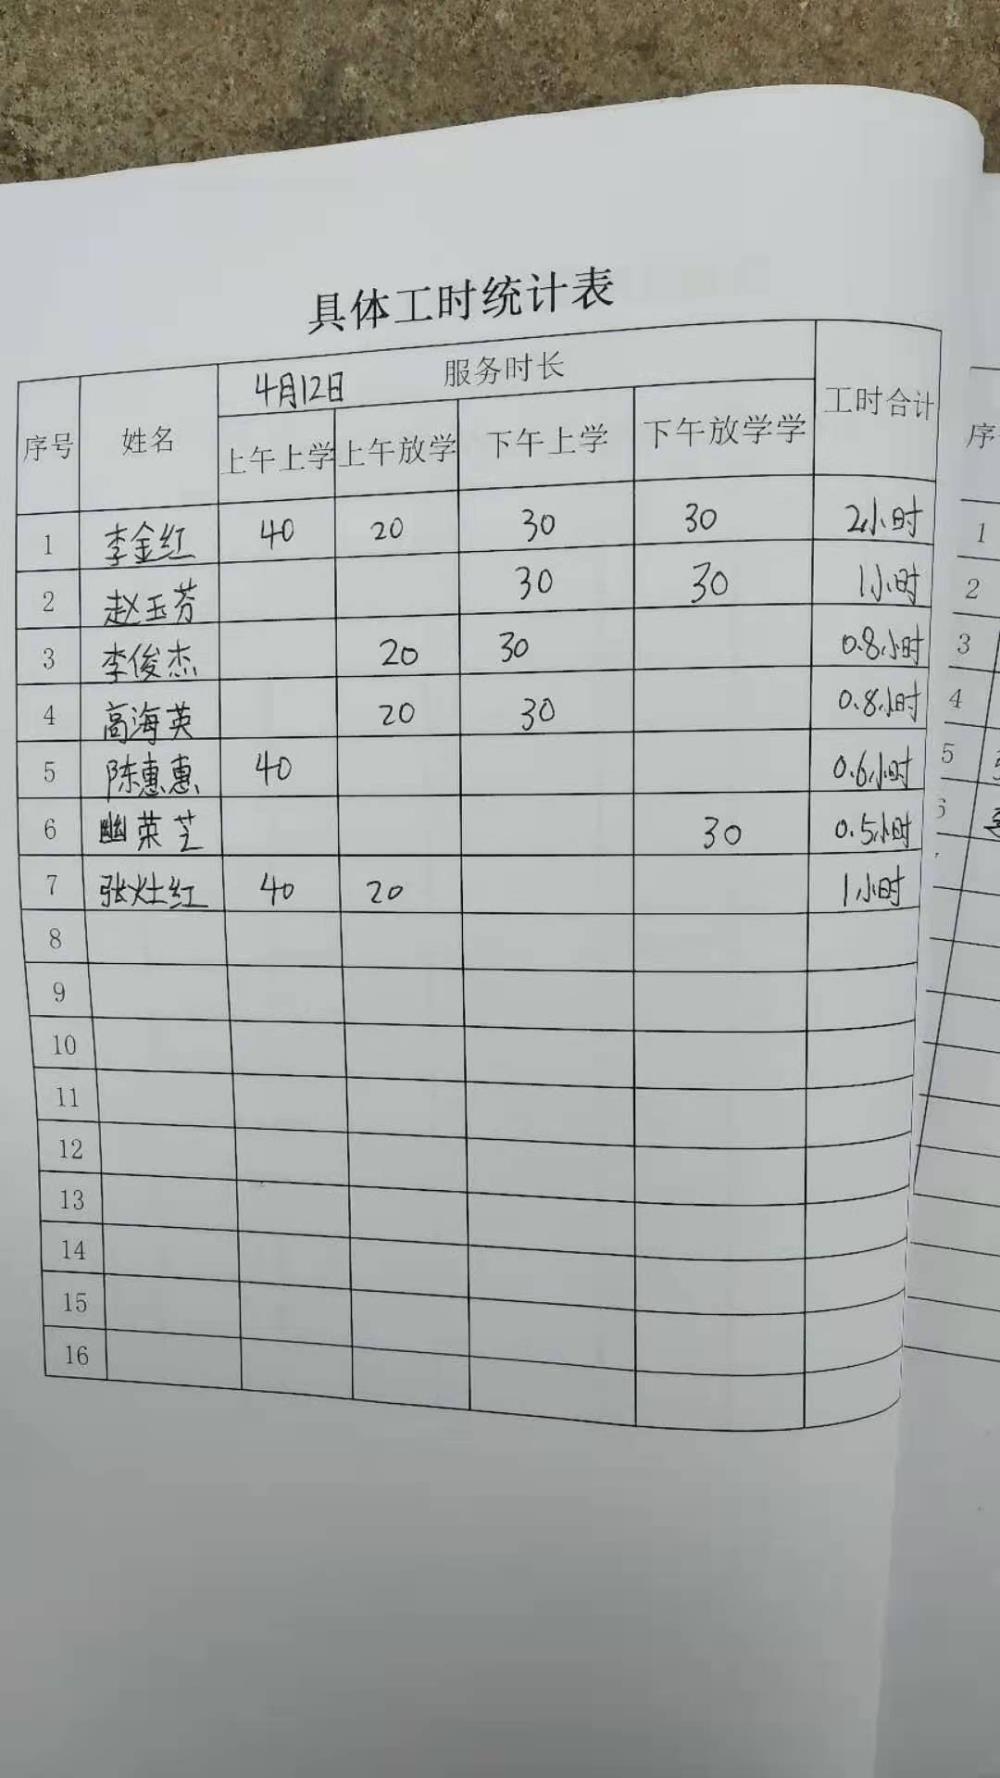 具体工时统计表
序号 姓名 4月12日 服务时长 工时合计
上午上学 上午放学 下午上学 下午放学学
1 李金红 40 20 30 30 2小时
2 赵玉芬 30 30 1小时
3 李俊杰 20 30 0.8小时
4 高海英 20 30 0.8小时
5 陈惠惠 40 0.6小时
6 幽荣芝 30 0.5小时
7 张灶红 40 20 1小时
8
9
10
11
12
13
14
15
16
序
1
2
3
4
5